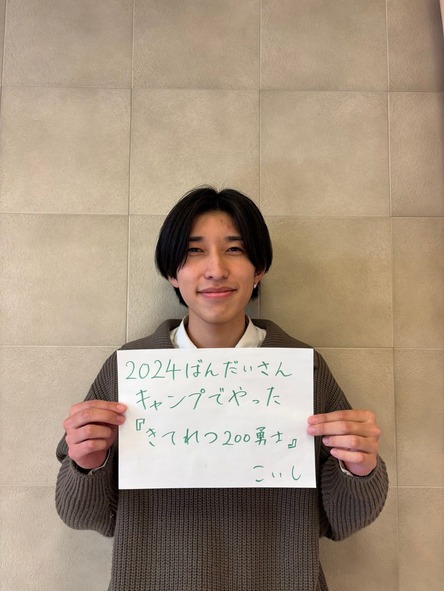 2024ばんだいさん
キャンプでやった
『きてれつ200勇士』
こいし